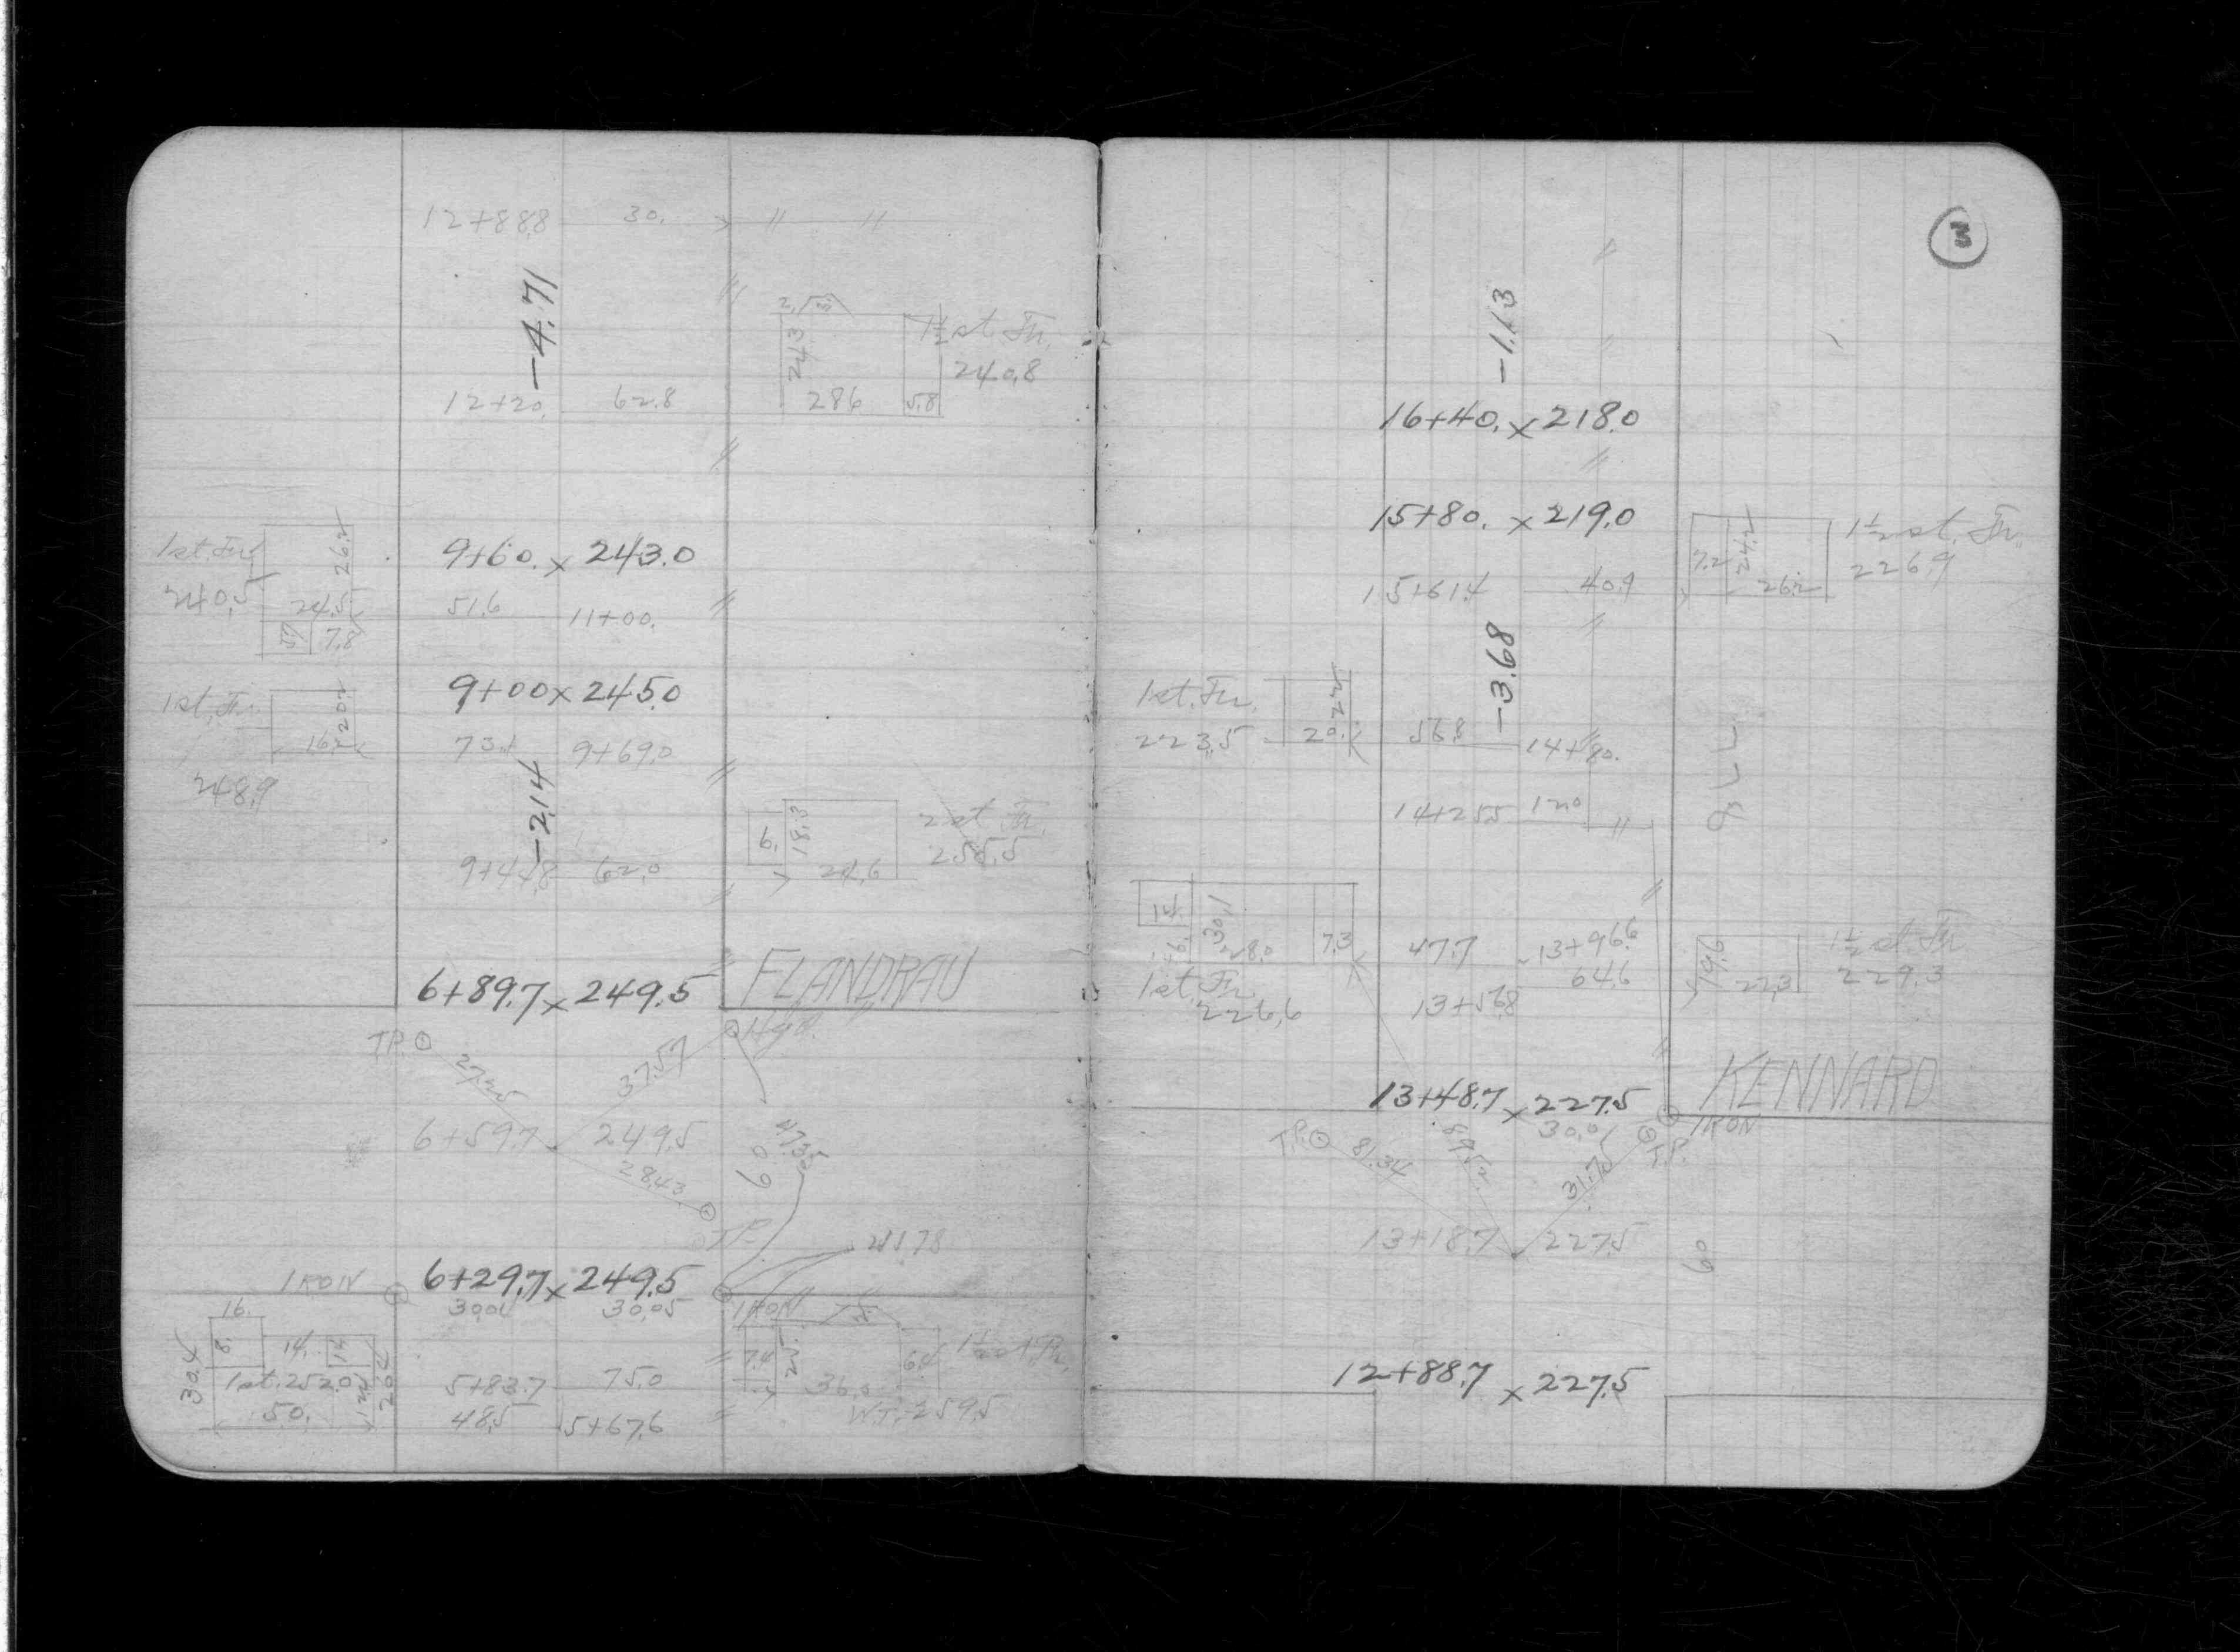 12+88.8 30. " "
-4.71
24.3
1½ st. Fr.
240.8
12+20. 62.8 28.6 5.8
1st. Fr.
26.2
9+60. x 243.0
240.5
24.5
51.6 11+00.
7.8
9+00 x 245.0
1st. Fr.
20.2
16.2
73.1 9+69.0
248.9
-2.14
6. 18.3
2 st Fr.
255.5
9+44.8 62.0 24.6
6+89.7 x 249.5 FLANDRAU
T.P. Hyd.
27.25 37.57
6+59.7 249.5
28.43
60
47.35
T.P.
IRON 6+29.7 x 249.5
30.05
IRON
16.
8. 14.
30.4
1st. 252.0
20.4
7.4 25. 6.4 1½ st. Fr.
5+83.7 75.0 36.0
50. 48.5 5+67.6 W.T. 259.5
3
-1.13
16+40. x 218.0
15+80. x 219.0
7.2 24.2
1½ st. Fr.
226.9
15+61.4 40.9 26.2
-3.68
1st. Fr.
22.2
223.5 20. 56.8 14+80.
14+25.5 12.0
14. 30.1
28.0 7.3 47.7 13+96.6
19.6
1½ st Fr
1st. Fr.
226.6
64.6 22.3 229.3
13+56.8
KENNARD
13+48.7 x 227.5
IRON
30.01
T.P. 81.34
31.75
T.P.
13+18.7 227.5
60
12+88.7 x 227.5